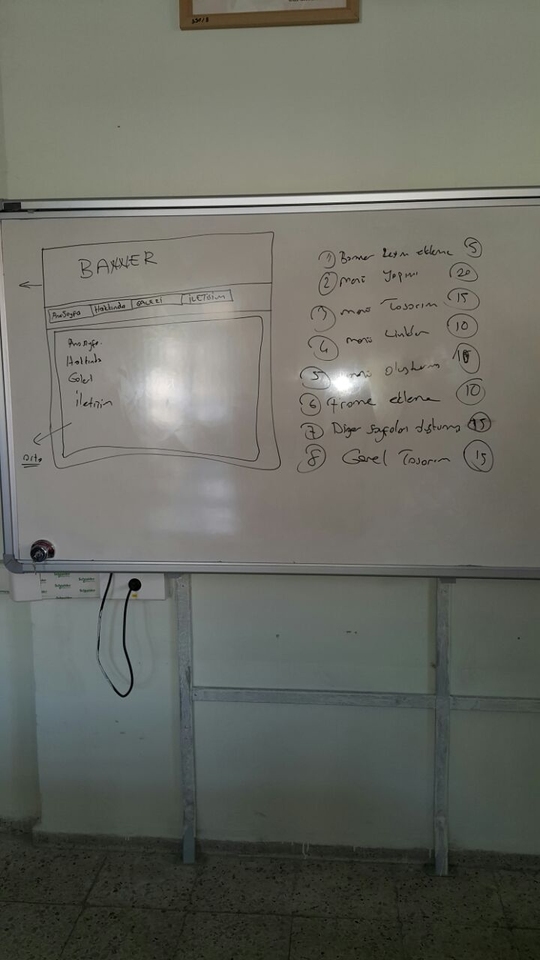 BANNER
AnaSayfa Hakkında GALERİ İLETİŞİM
Anasayfa
Hakkında
Galeri
İletişim
orta
1 Banner Resim ekleme 5
2 menü Yapımı 20
3 menü Tasarım 15
4 menü Linkleri 10
5 menü oluşturma 10
6 frame ekleme 10
7 Diğer sayfaları oluşturma 15
8 Genel Tasarım 15